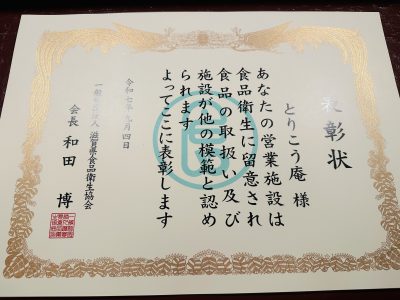 表彰状
とりこう庵 様
あなたの営業施設は
食品衛生に留意され
食品の取扱い及び
施設が他の模範と認め
られます
よってここに表彰します
令和七年 月四日
一般 法人 滋賀県食品衛生協会
会長 和田 博